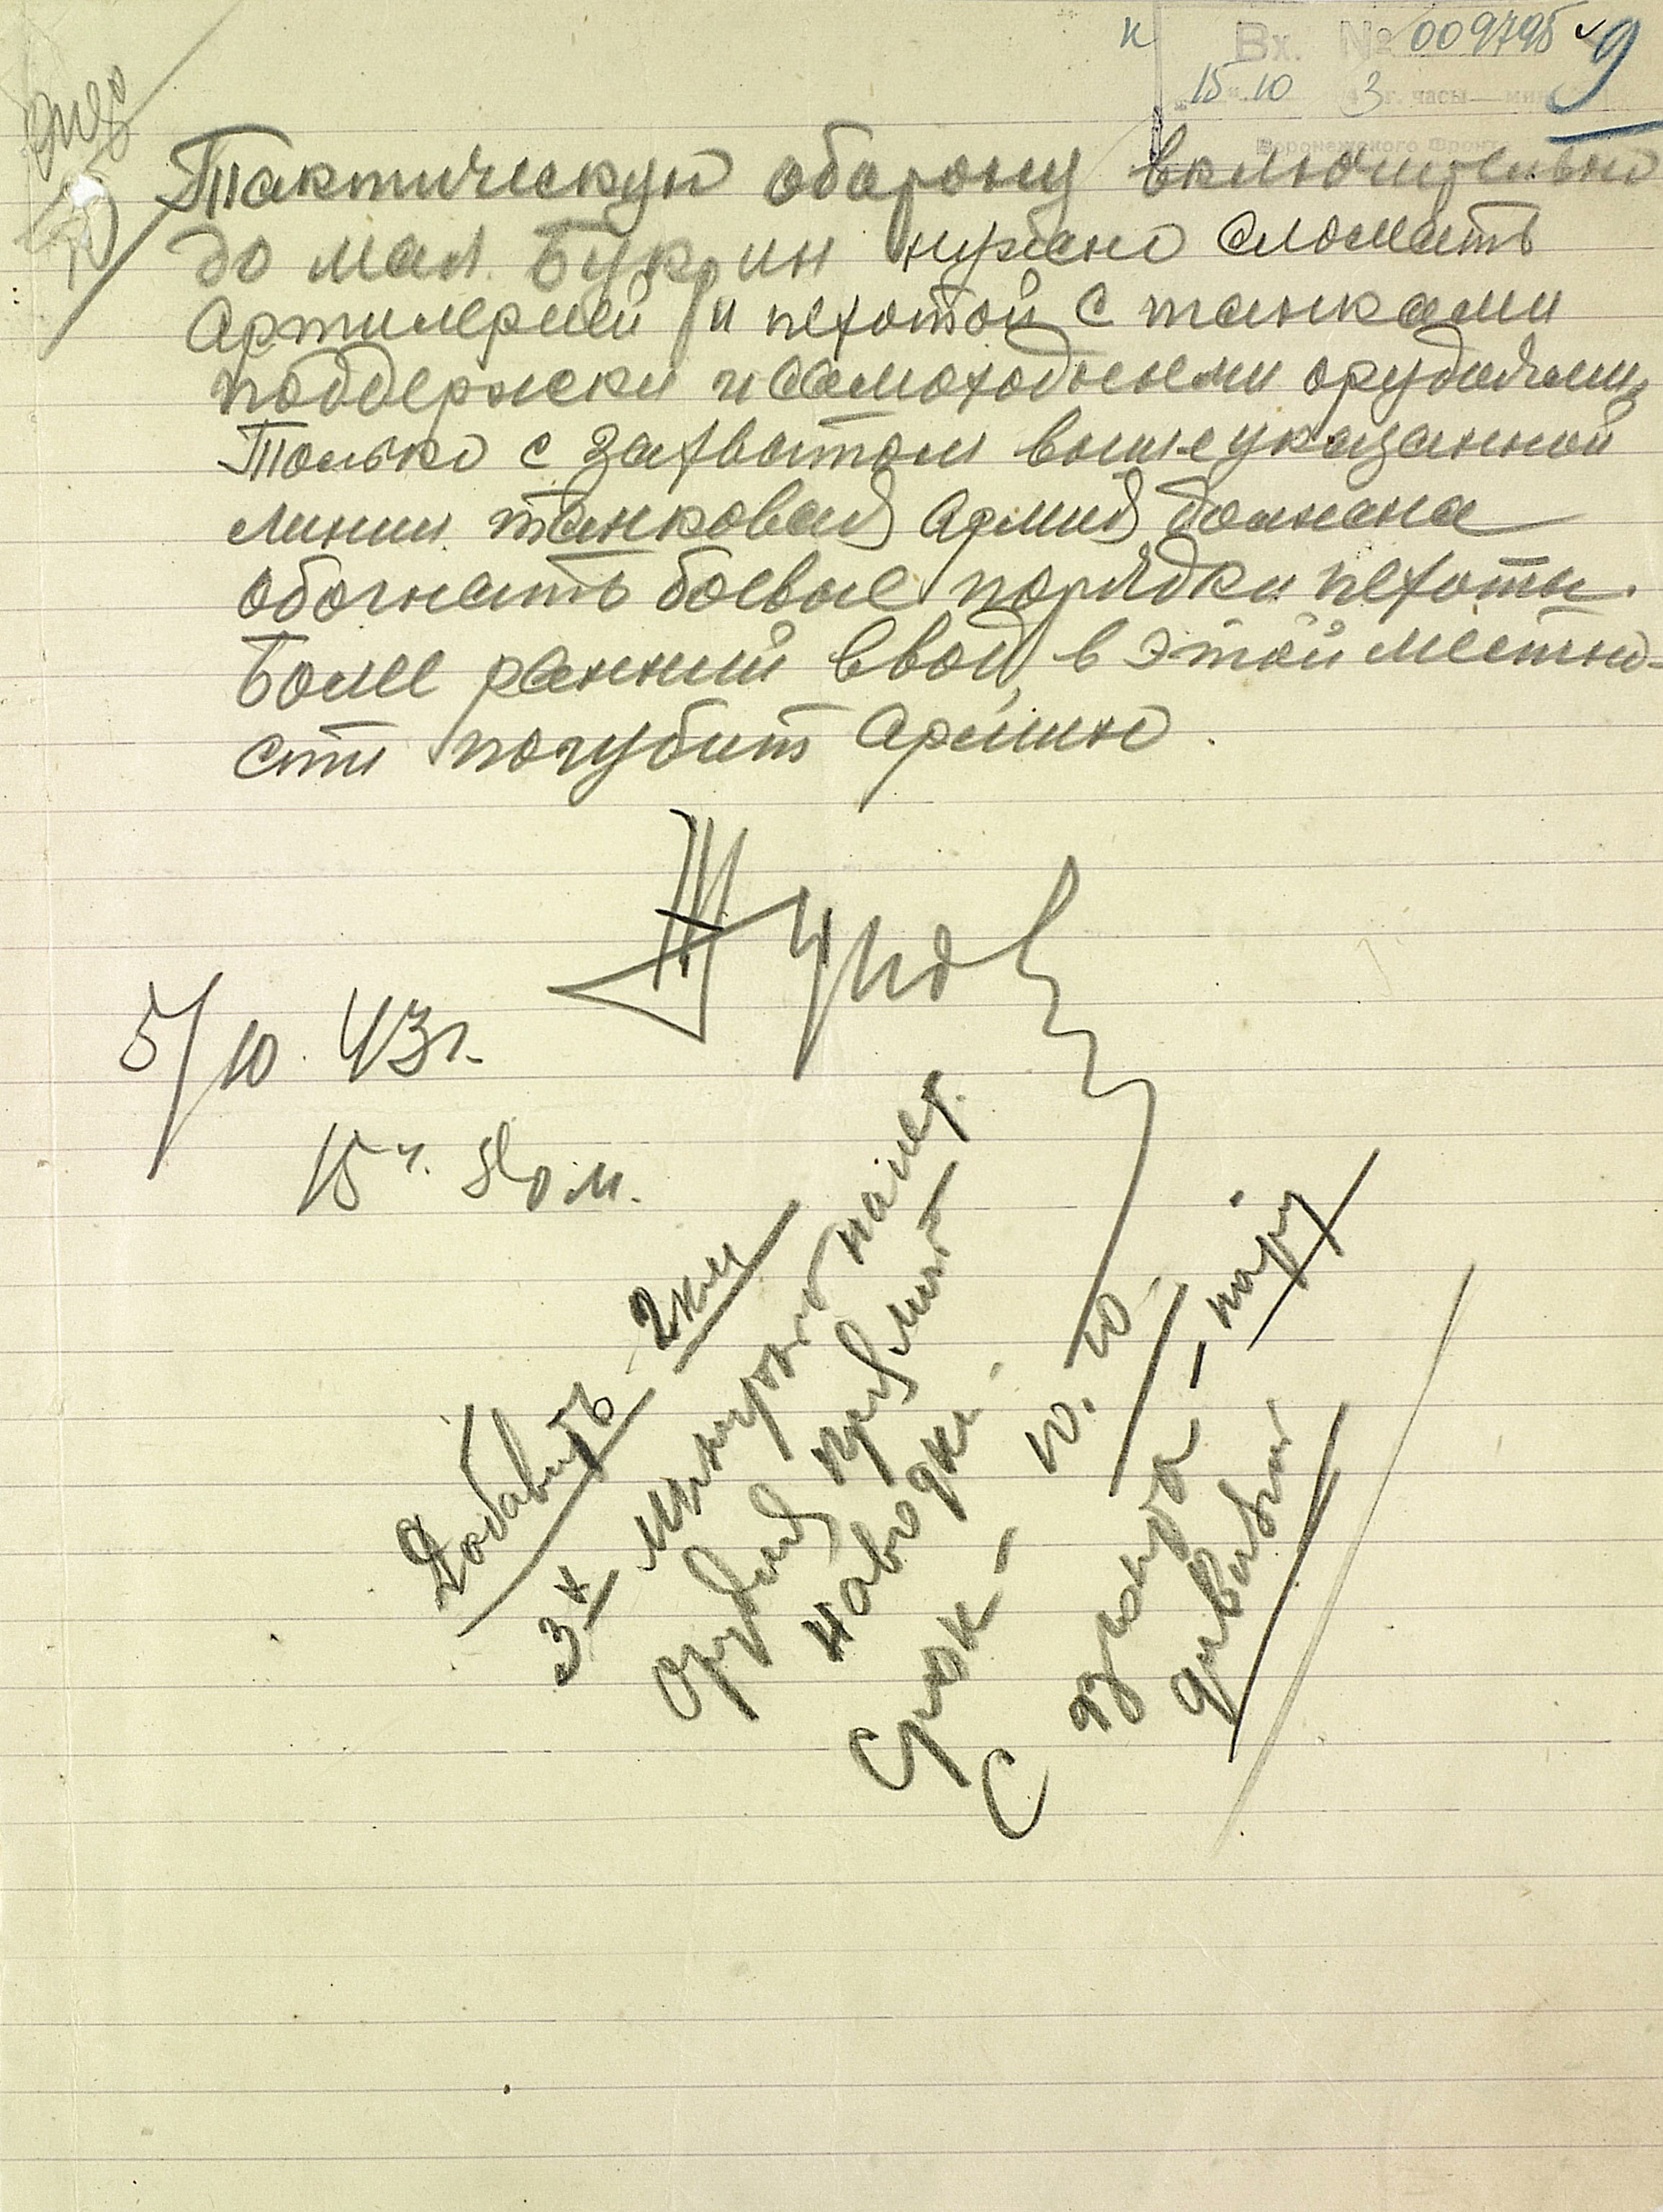 Вх. № 009795 9
15 10 3 г. часы — мин
Воронежского Фронта
Тактическую оборону включительно
до мал. Букрин нужно сломать
Артилерией и пехотой с танками
поддержки и самоходными орудиями,
Только с захватом вышеуказанной
линии танковая Армия должна
обогнать боевые порядки пехоты.
Более ранний ввод, в этой местно-
сти погубит Армию.
Жуков
5/10. 43г.
15 ч. 50 м.
Добавить 2 км
3х
орудия прямой
наводки.
Срок – 10. 10
С